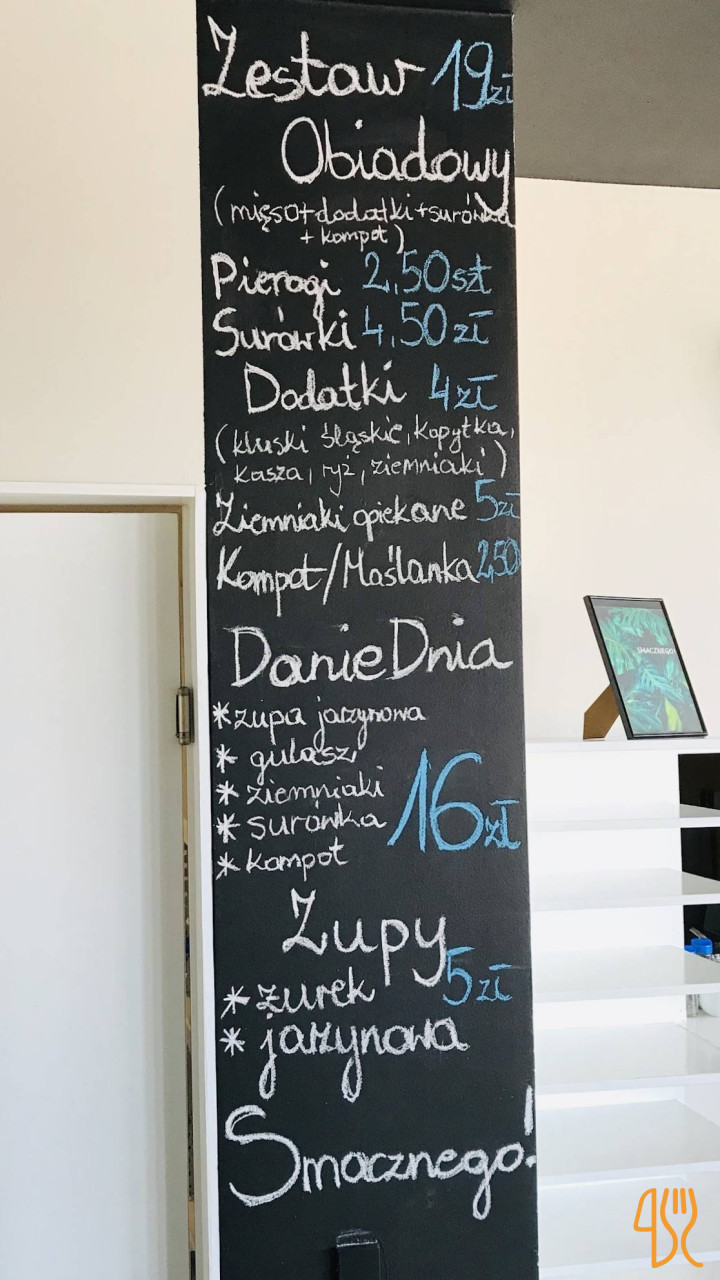 Zestaw 19zł
Obiadowy
(mięso+dodatki+surówka
+ kompot)
Pierogi 2,50szt
Surówki 4,50 zł
Dodatki 4zł
(kluski śląskie, kopytka,
kasza, ryż, ziemniaki)
Ziemniaki opiekane 5zł
Kompot/Maślanka 2,50
Danie Dnia
*zupa jarzynowa
* gulasz
* ziemniaki
* surówka 16zł
* kompot
Zupy
* żurek 5zł
* jarzynowa
Smacznego!
SMACZNEGO!